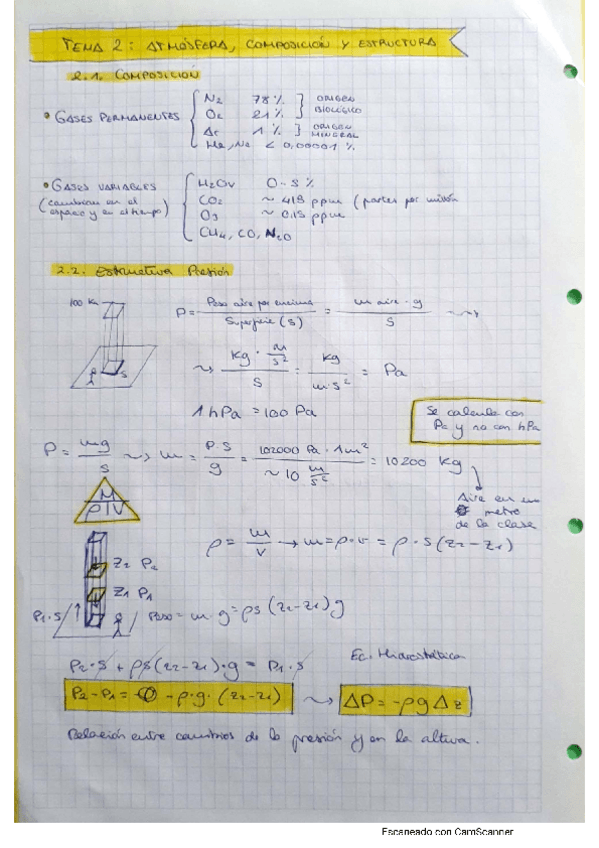 TEMA 2: ATMÓSFERA, COMPOSICIÓN Y ESTRUCTURA
2.1. COMPOSICIÓN
• GASES PERMANENTES
N2 78 % } ORIGEN BIOLÓGICO
O2 21 %
Ar 1 % } ORIGEN MINERAL
He, Ne < 0,00001 %
• GASES VARIABLES
(cambian en el
espacio y en el tiempo)
H2Ov 0-5 %
CO2 ~ 418 ppm (partes por millón
O3 ~ 0.15 ppm
CH4, CO, N2O
2.2. Estructura Presión
100 Km
S
P = Peso aire por encima / Superficie (S) = m aire · g / S
↝ kg · m/s² / S = kg / m·s² = Pa
1 hPa = 100 Pa
Se calcula con
Pa y no con hPa
P = mg / S ↝ m = P·S / g = 102000 Pa · 1m² / ~10 m/s² = 10200 Kg
Aire en un
metro
de la clase
M
ρ | V
ρ = m / v → m = ρ·v = ρ·S (z2 - z1)
Z2 P2
Z1 P1
P1·S
Peso = m·g = ρs (z2 - z1) g
P2·S + ρS (z2 - z1)·g = P1·S
Ec. Hidrostática
P2 - P1 = -ρ·g·(z2 - z1) ↝ ΔP = -ρgΔz
Relación entre cambios de la presión y en la altura.
Escaneado con CamScanner